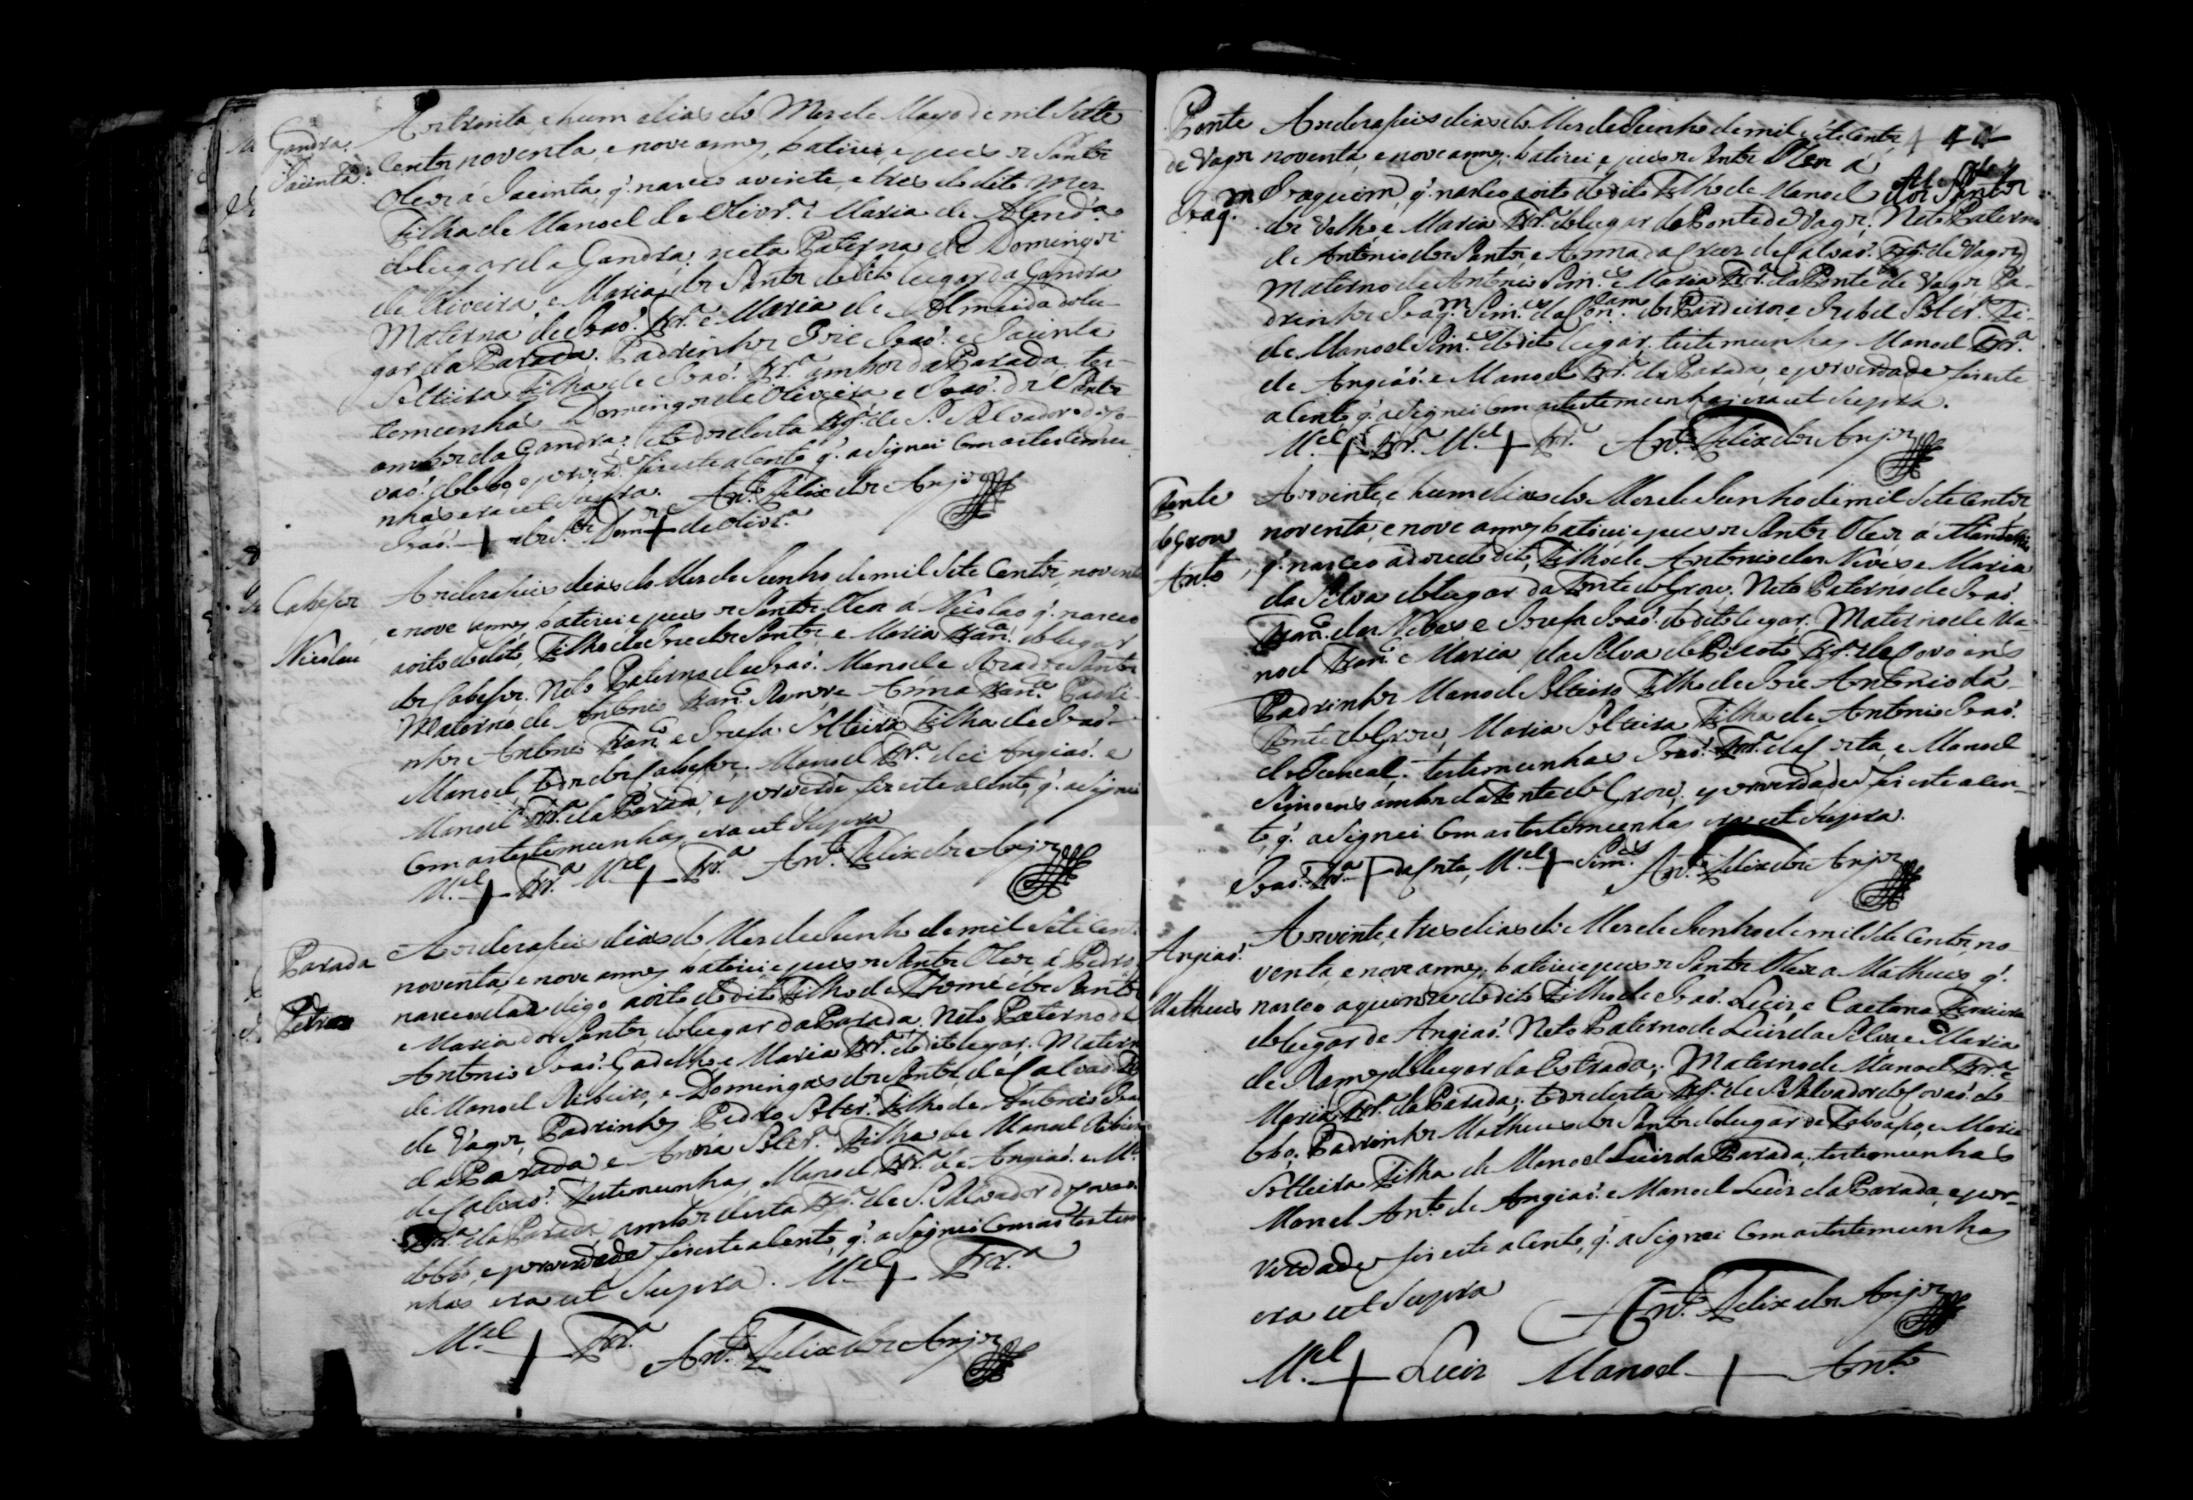 Gandra.
Jacinta.
Aos trinta, e hum dias do Mes de Mayo de mil Sette
Centos noventa, e nove annos, batizei, e puis os Santos
Oleos á Jacinta, q̃. nasceo a vinte, e tres do dito Mes
Filha de Manoel de Olivr.ª e Maria de Almd.ª
do lugar da Gandra; neta Paterna de Domingos
de Oliveira, e Maria dos Santos do dito lugar da Gandra
Materna, de Joaõ Frr.ª e Maria de Almeida do lu-
gar da Parada. Padrinhos Joze Joaõ, e Jacinta
Solteira Filha de Joaõ Frr.ª ambos da Parada, tes-
temunhas Domingos de Oliveira e Joaõ dos Santos
ambos da Gandra; todos desta Frg.ª de S. Salvador de Co-
vaõ do Lobo, e por verd.e fis este acento, q̃. asignei Com as testemu-
nhas era ut Supra. Ant.º Felix dos Anjos
Joaõ + dos S.tos Dom.os + de Olivr.ª
Cabesos
Nicolau
Aos dezaseis dias do Mes de Junho de mil Sete Centos, noventa
e nove annos, batizei e puis os Santos Oleos á Nicolao q̃. nasceo
aoito do dito, Filho de Joze dos Santos e Maria Fran.ca do lugar
dos Cabesos. Neto Paterno de Joaõ Manoel e
Materno de Antonio Fran.co Ramos e Anna Fran.ca Padri-
nhos Antonio Fran.co e Josefa Solteira Filha de Joaõ
Manoel, todos dos Cabesos. Manoel Frr.ª de Angiaõ e
Manoel Frr.ª da Parada, e por verd.e fis este acento, q̃. asignei
Com as testemunhas era ut Supra
M.el + Frr.ª M.el + Frr.ª Ant.º Felix dos Anjos
Parada
Pedro
Aos dezaseis dias do Mes de Junho de mil Sete Cen.
noventa, e nove annos, batizei e puis os Santos Oleos á Pedro
nasceo digo aoito do dito Filho de Thomé dos Santos
e Maria dos Santos, do lugar da Parada, Neto Paterno de
Antonio Joaõ Gadelho, e Maria Frr.ª do dito lugar. Matern
de Manoel Ribeiro, e Domingas dos Santos, de Calvaõ
de Vagos, Padrinhos Pedro Soltr.º Filho de Antonio Joa
da Parada e Anna Soltr.ª Filha de Manoel Ribeiro
de Calvaõ. Testemunhas Manoel Frr.ª de Angiaõ e M.el
Frr.ª da Parada, ambos desta Frg.ª de S. Salvador de Covaõ
do Lobo, e por verdade fis este acento, q̃. asignei Com as testem
nhas era ut Supra. M.el + Frr.ª
M.el + Frr.ª Ant.º Felix dos Anjos
Ponte
de Vagos
Joaq.m
Aos dezaseis dias do Mes de Junho de mil Sete Centos
noventa, e nove annos, batizei, e puis os Santos Oleos á
Joaquim, q̃. nasceo aoito do dito Filho de Manoel dos Santos
do lugar da Ponte de Vagos; Neto Paterno
de Antonio dos Santos, e Anna da Cruz de Calvaõ Frg.ª de Vagos
Materno de Antonio Sim.es e Maria Frr.ª da Ponte de Vagos, Pa-
drinhos Joaq.m Sim.es dos Cardeiros e Izabel Soltr.ª Fi.
de Manoel Sim.es do dito lugar, testemunhas Manoel Frr.ª
de Angiaõ e Manoel Frr.ª da Parada, e por verdade fis este
acento, q̃. asignei Com as testemunhas era ut Supra.
M.el + Frr.ª M.el + Frr.ª Ant.º Felix dos Anjos
Fonte
do Grou
Ant.º
Aos vinte, e hum dias do Mes de Junho de mil Sete Centos
noventa, e nove annos batizei e puis os Santos Oleos á Antonio
q̃. nasceo a doze do dito, Filho de Antonio das Neves e Maria
da Silva do lugar da Fonte do Grou. Neto Paterno de Joaõ
Fran.co das Neves e Josefa Joaõ do dito lugar. Materno de Ma-
noel Fran.co e Maria da Silva
Padrinhos Manoel Solteiro Filho de Joze Antonio da
Fonte do Grou, Maria Solteira Filha de Antonio Joaõ
do Juncal; testemunhas Joaõ Frr.ª da Costa, e Manoel
Simoens ambos da Fonte do Grou, e por verdade fis este acen-
to, q̃. asignei Com as testemunhas era ut Supra.
Joaõ Frr.ª + da Costa, M.el + Sim.es Ant.º Felix dos Anjos
Angiaõ
Matheus
Aos vinte, e tres dias do Mes de Junho de mil Sete Centos, no-
venta, e nove annos, batizei e puis os Santos Oleos a Matheus q̃.
nasceo a quinze do dito Filho de Joaõ Luis e Caetana Ferreira
do lugar de Angiaõ. Neto Paterno de Luis da Silva, e Maria
de Ramos do lugar da Estrada; Materno de Manoel Frr.ª e
Maria Frr.ª da Parada; todos desta Frg.ª de S. Salvador de Covaõ do
Lobo, Padrinhos Matheus dos Santos do lugar da Taboaço, e Maria
Solteira Filha de Manoel Luis da Parada; testemunhas
Manoel Ant.º de Angiaõ e Manoel Luis da Parada, e por
verdade fis este acento, q̃. asignei Com as testemunhas
era ut Supra
Ant.º Felix dos Anjos
M.el + Luis Manoel + Ant.º